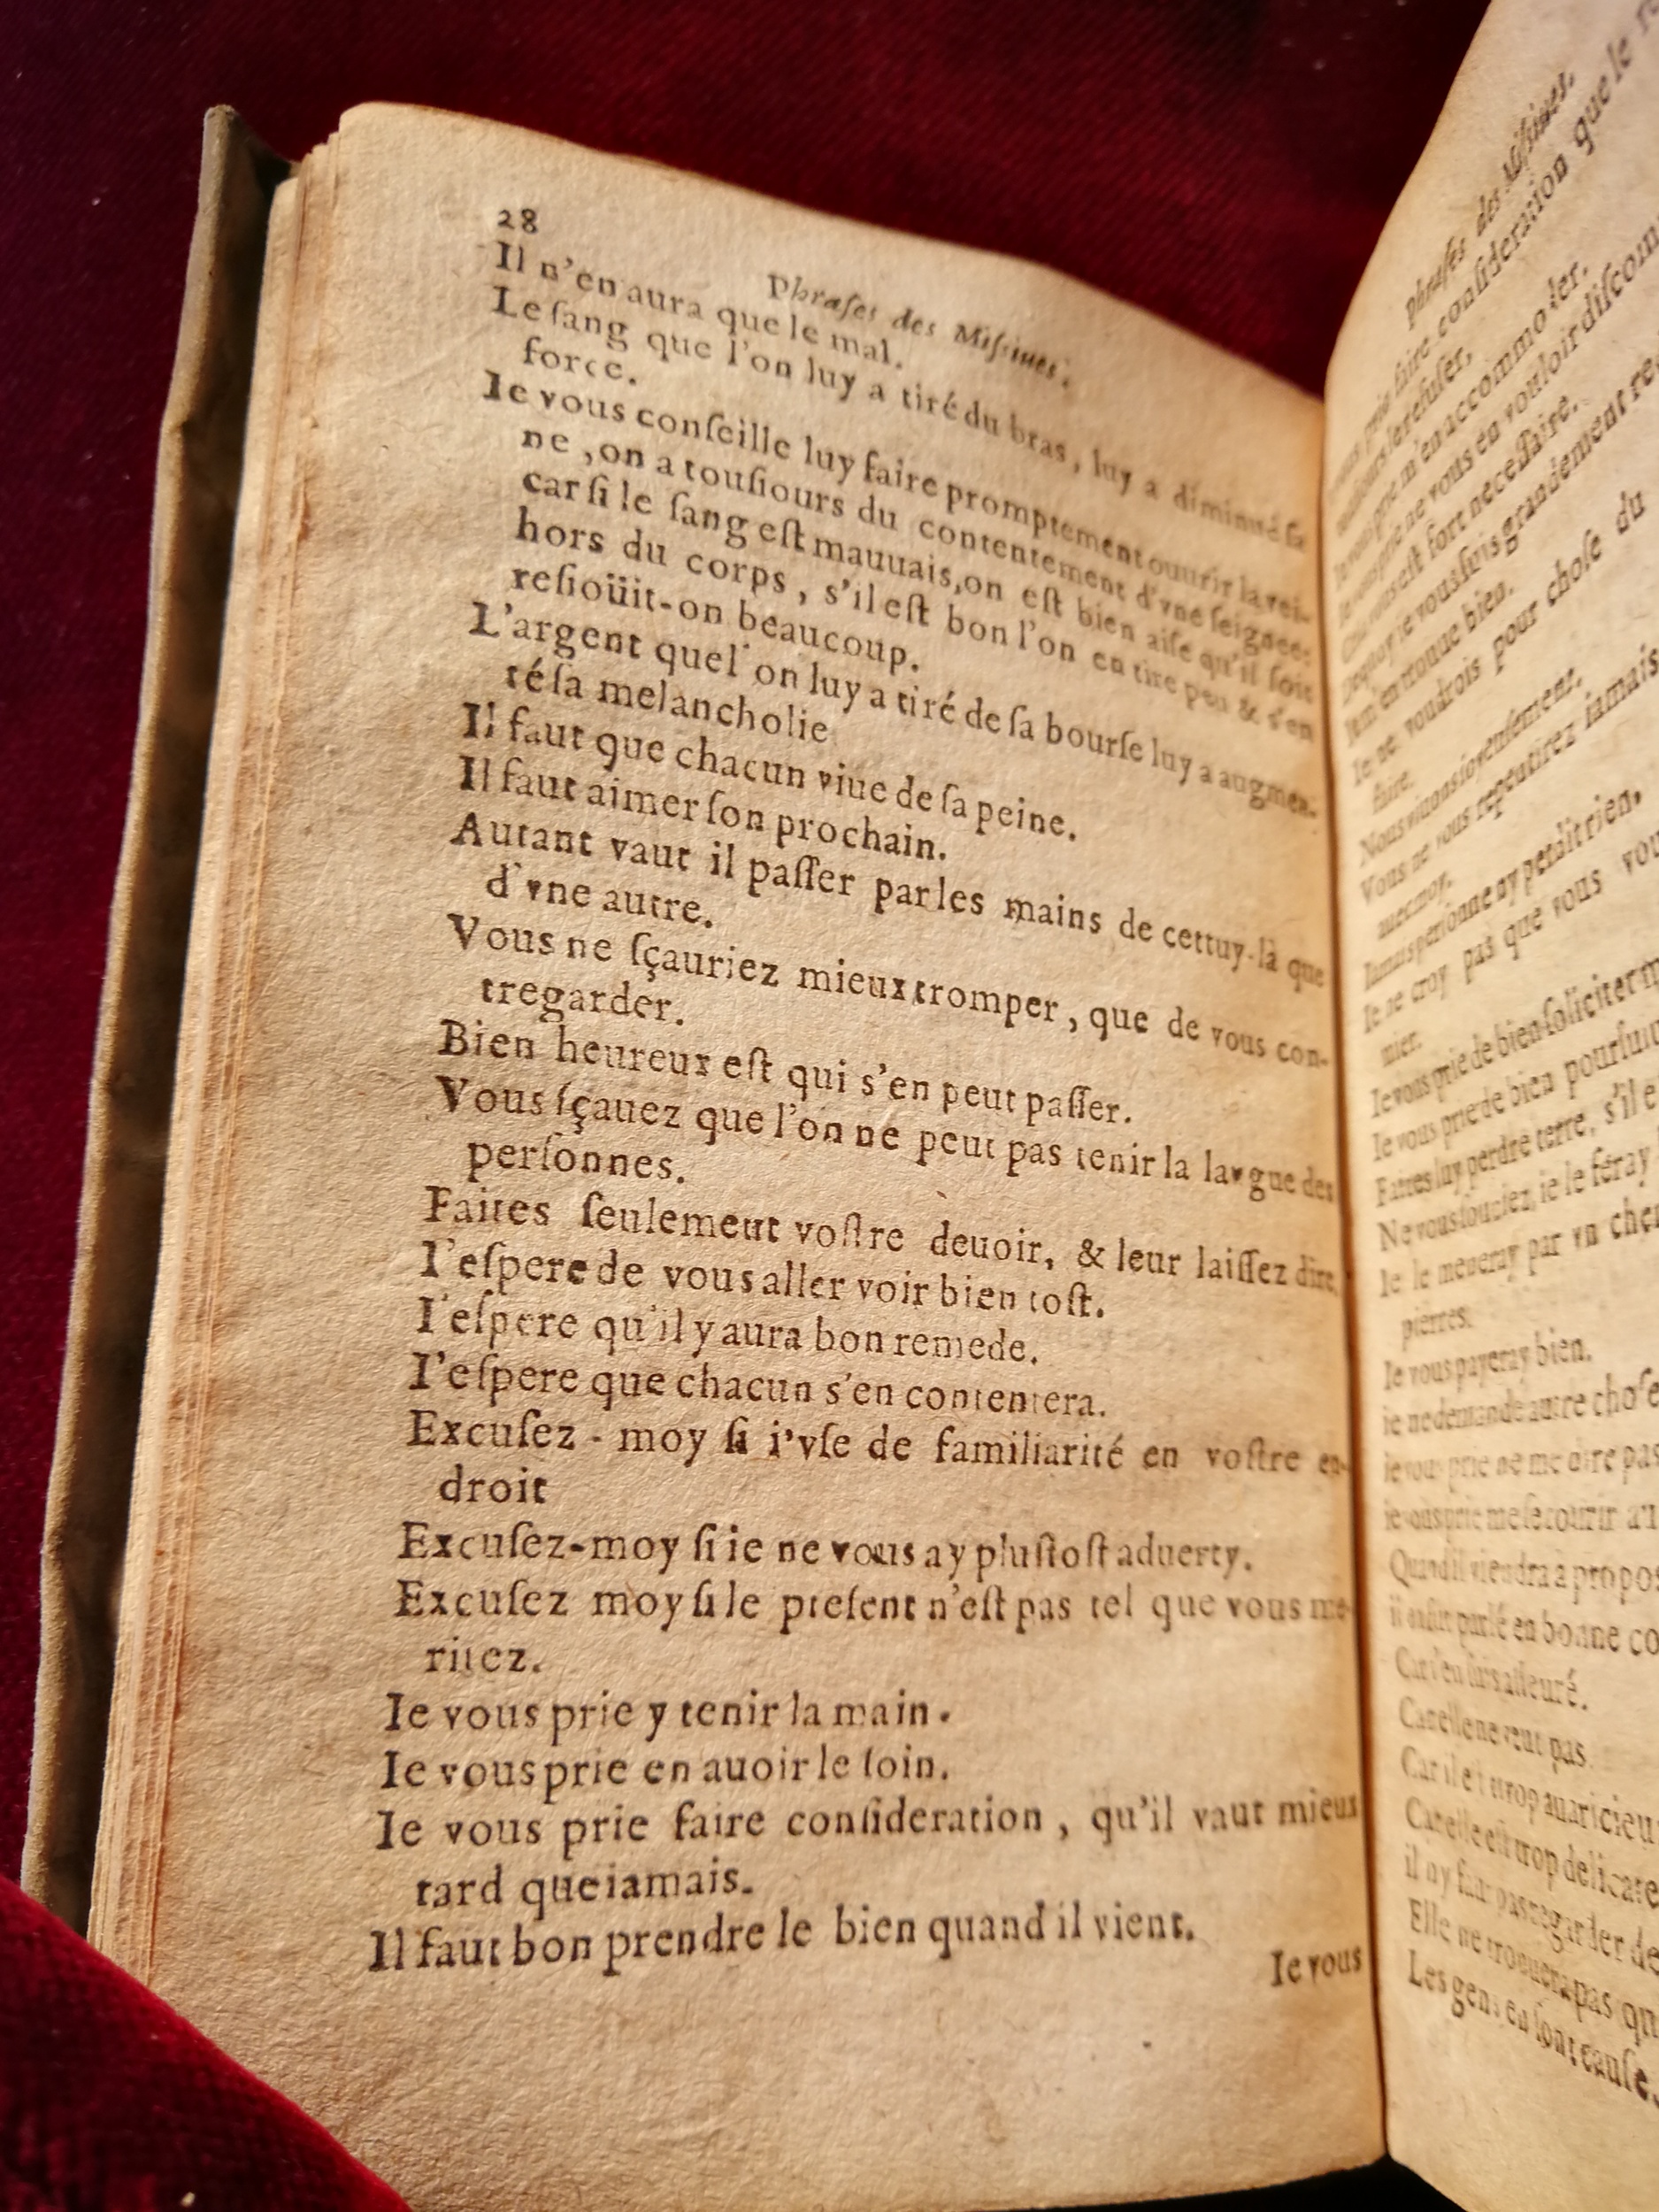 28
Phraſes des Miſsiues.
Il n'en aura que le mal.
Le ſang que l'on luy a tiré du bras, luy a diminué ſa
force.
Ie vous conſeille luy faire promptement ouurir la vei-
ne, on a touſiours du contentement d'vne ſeignee:
car ſi le ſang eſt mauuais, on eſt bien aiſe qu'il ſoit
hors du corps, s'il eſt bon l'on en tire peu & s'en
reſioüit-on beaucoup.
L'argent quel'on luy a tiré de ſa bourſe luy a augmen-
té ſa melancholie
Il faut que chacun viue de ſa peine.
Il faut aimer ſon prochain.
Autant vaut il paſſer par les mains de cettuy-là que
d'vne autre.
Vous ne ſçauriez mieux tromper, que de vous con-
tregarder.
Bien heureux eſt qui s'en peut paſſer.
Vous ſçauez que l'on ne peut pas tenir la langue des
perſonnes.
Faites ſeulemeut voſtre deuoir, & leur laiſſez dire.
I'eſpere de vous aller voir bien toſt.
I'eſpere qu'il y aura bon remede.
I'eſpere que chacun s'en contentera.
Excuſez-moy ſi i'vſe de familiarité en voſtre en-
droit
Excuſez-moy ſi ie ne vous ay pluſtoſt aduerty.
Excuſez moy ſi le preſent n'eſt pas tel que vous me-
ritez.
Ie vous prie y tenir la main.
Ie vous prie en auoir le ſoin.
Ie vous prie faire conſideration, qu'il vaut mieux
tard que iamais.
Il faut bon prendre le bien quand il vient.
Ie vous
Phraſes des Miſsiues.
faire conſideration que le
refuſer,
prie m'en accommoder.
prie ne vous en vouloir diſcom
eſt fort neceſſaire.
ie vous ſuis grandement
trouue bien.
Ie ne voudrois pour choſe du
faire.
Vous ne vous repentirez iamais
auec moy.
Iamais perſonne ny perdit rien.
Ie ne croy pas que vous vou
mier.
Ie vous prie de bien ſoliciter
Ie vous prie de bien pourſui
Faites luy perdre terre, s'il e
Ne vous ſouciez, ie le feray
Ie le meneray par vn che
pierres.
Ie vous payeray bien.
ie ne demande autre choſe
ie vous prie ne me dire pas
ie vous prie me ſecourir
Quand il viendra à propos
parlé en bonne co
Car i'en ſuis aſſeuré.
Car elle ne veut pas
Car il eſt trop auaricieu
Car elle eſt trop delicate
il ny faut pas regarder de
Elle ne trouuera pas qu
Les gens en ſont cauſe.